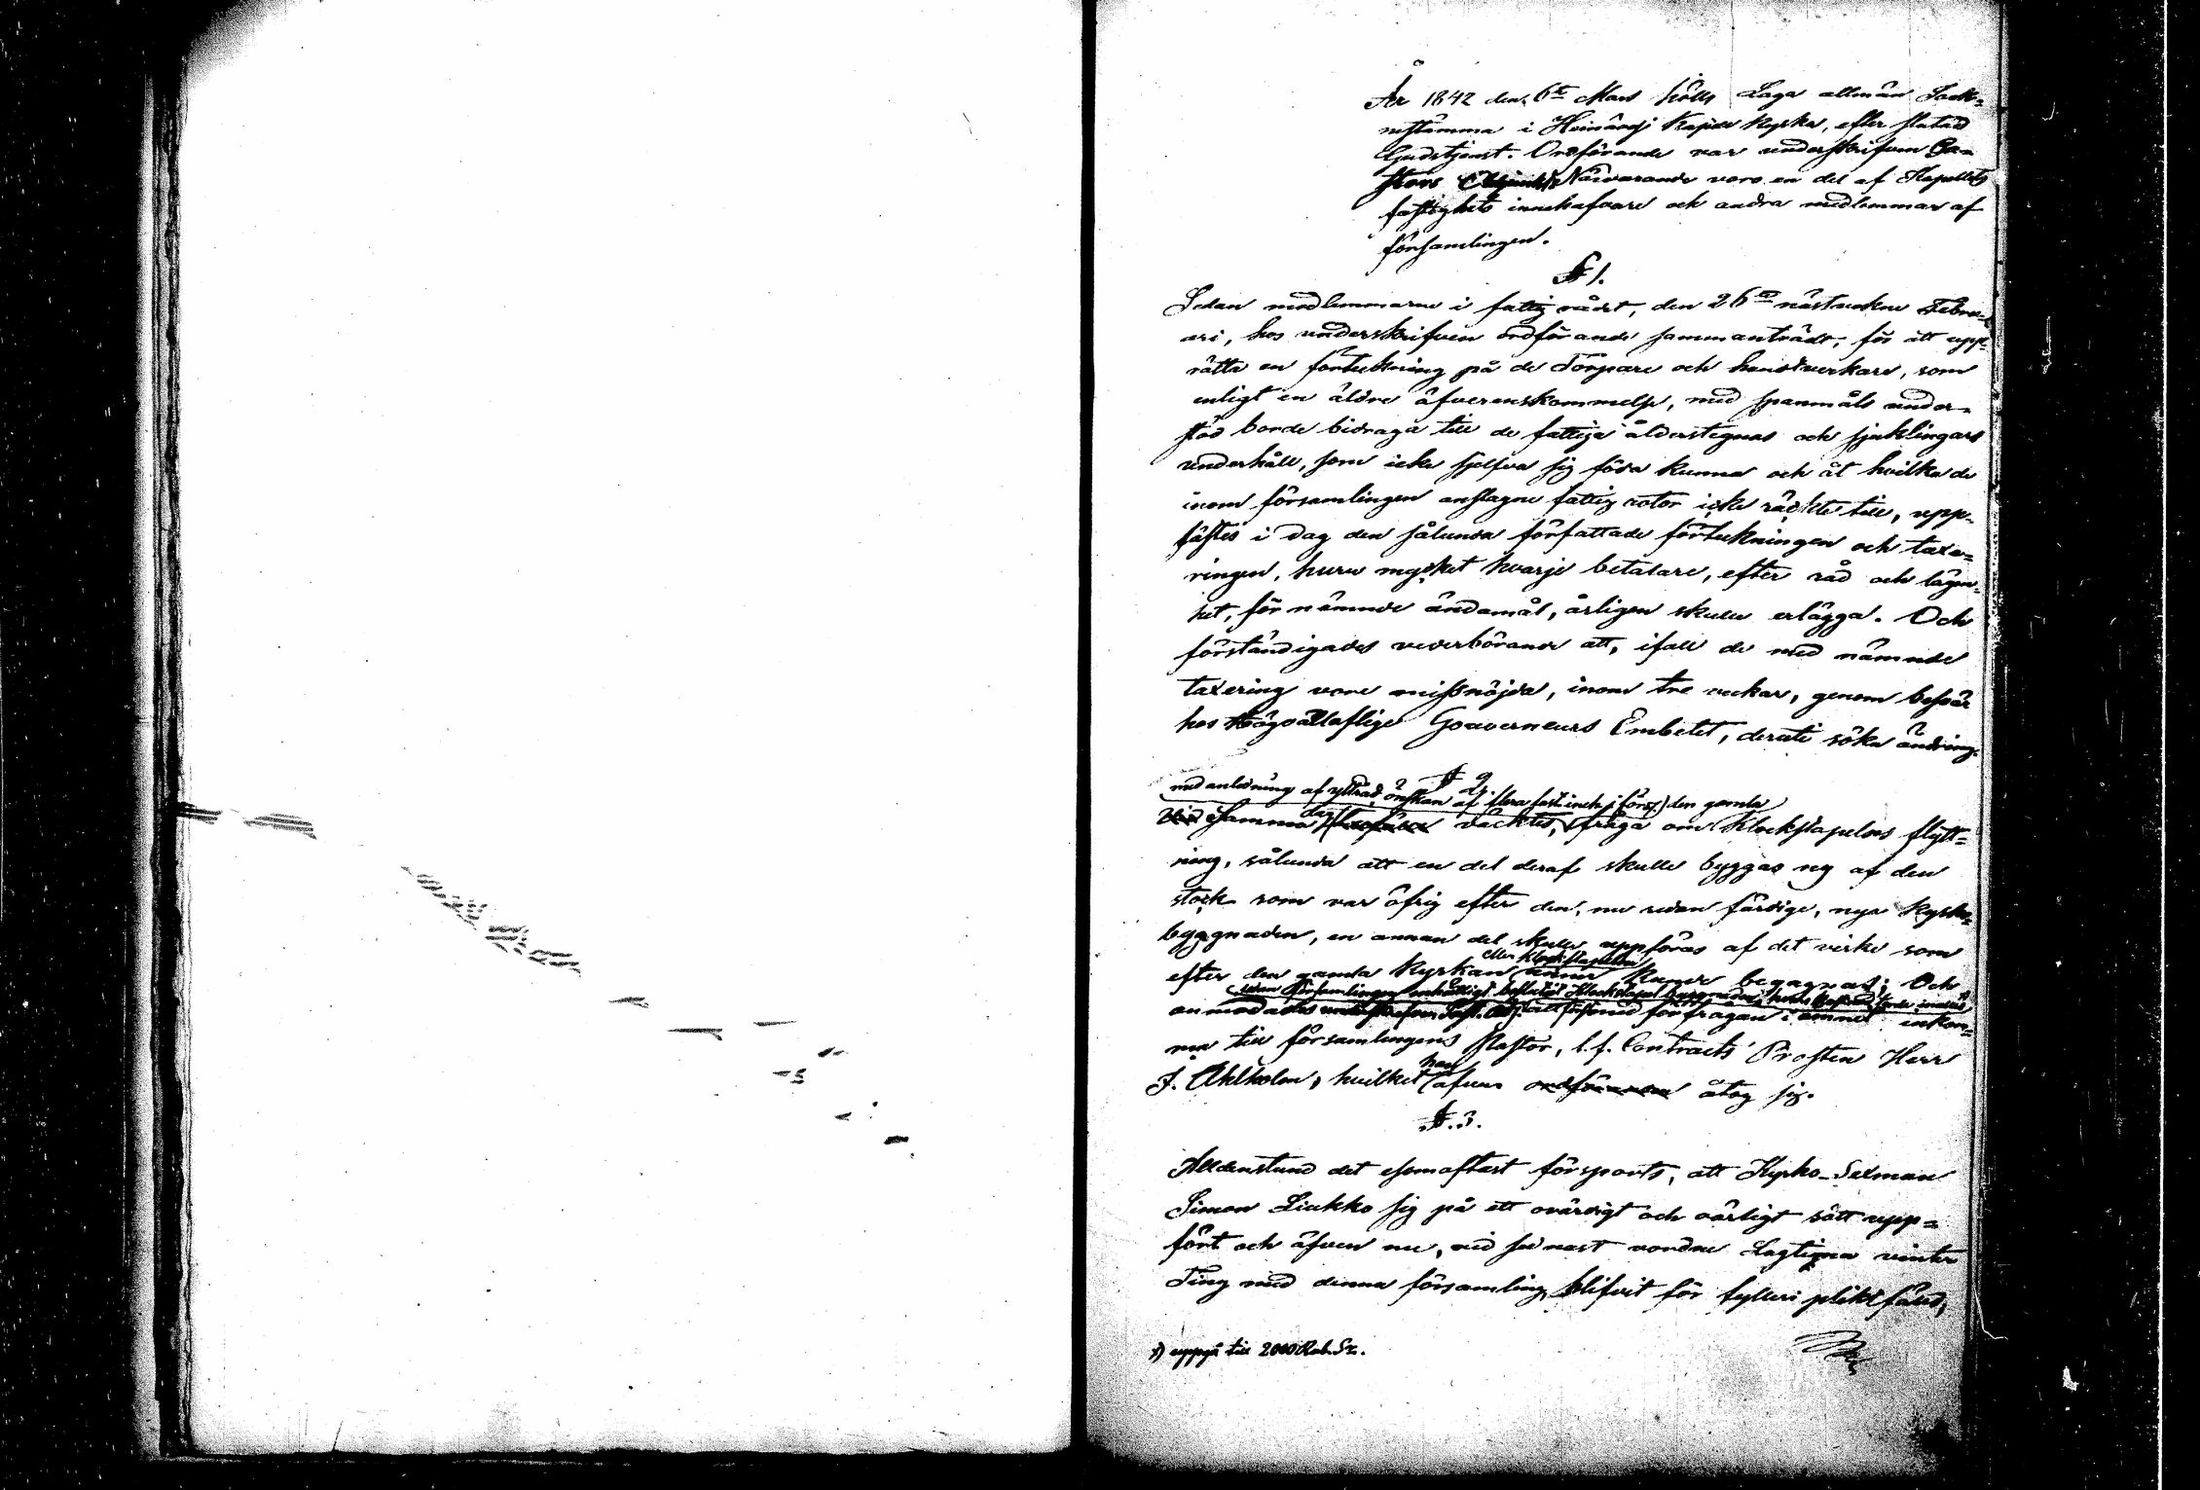 År 1842 den 6te Mars hölls Laga allmän Sock-
nestämma i Heinävesi Kapele Kyrka, efter slutad
Gudstjenst. Ordförande var underskrifven Pa-
stors Närvarande voro en del af Kapellets
fastighets innehafvare och andra medlemmar af
församlingen.
§ 1.
Sedan medlemmarne i fattig vådet, den 26te nästvekne Febru-
ari, hos underskrifven ordförande sammanträdt, för att upp-
rätta en förtekning på de Torpare och handtverkare, som
enligt en äldre öfverenskommelse, med spanmåls under-
stöd borde bidraga till de fattiga ålderstegnas och sjuklingars
underhåll, som icke sjelfva sig föda kunna och åt hvilka de
inom församlingen anslagne fattig rotor icke räckte till, upp-
lästes i dag den sålunda författade förtekningen och taxe-
ringen, huru mycket hvarje betalare, efter råd och lägen-
het, för nämnde ändamål, årligen skulle erlägga. Och
förständigades vederbörande att, ifall de med nämnde
taxering vore missnöjda, inom tre veckor, genom besvär
hos Högvällaflige Gouverneurs Embetet, deruti söka ändring.
§ 2
med anledning af yttrad önskan af flera fast. inneh. i förs. den gamla
Vid Samma dag väcktes fråga om Klockstapelns flytt-
ning, sålunda att en del deraf skulle byggas ny af den
stock som var öfrig efter den, nu redan färdige, nya Kyrko-
byggnaden, en annan del skulle uppföras af det virke som
eller klockstapeln
efter den gamla Kyrkan kunde begagnas; Och
sedan församlingen enhälligt
anmodades förfrågan i ämnet inkom-
ma till församlingens Pastor, t.f. Contracts Prosten Herr
J. Ahlholm, hvilket han äfven ordföranden åtog sig.
§. 3.
Alldenstund det esomoftast försports, att Kyrko-Sexman
Simon Liukko sig på ett ovärdigt och oärligt sätt upp-
fört och äfven nu, vid sednast vordne Lagtigna vinter
Ting med denna församling, blifvit för fylleri pliktfäld,
x) uppgå till 2000 Rub. Sr.